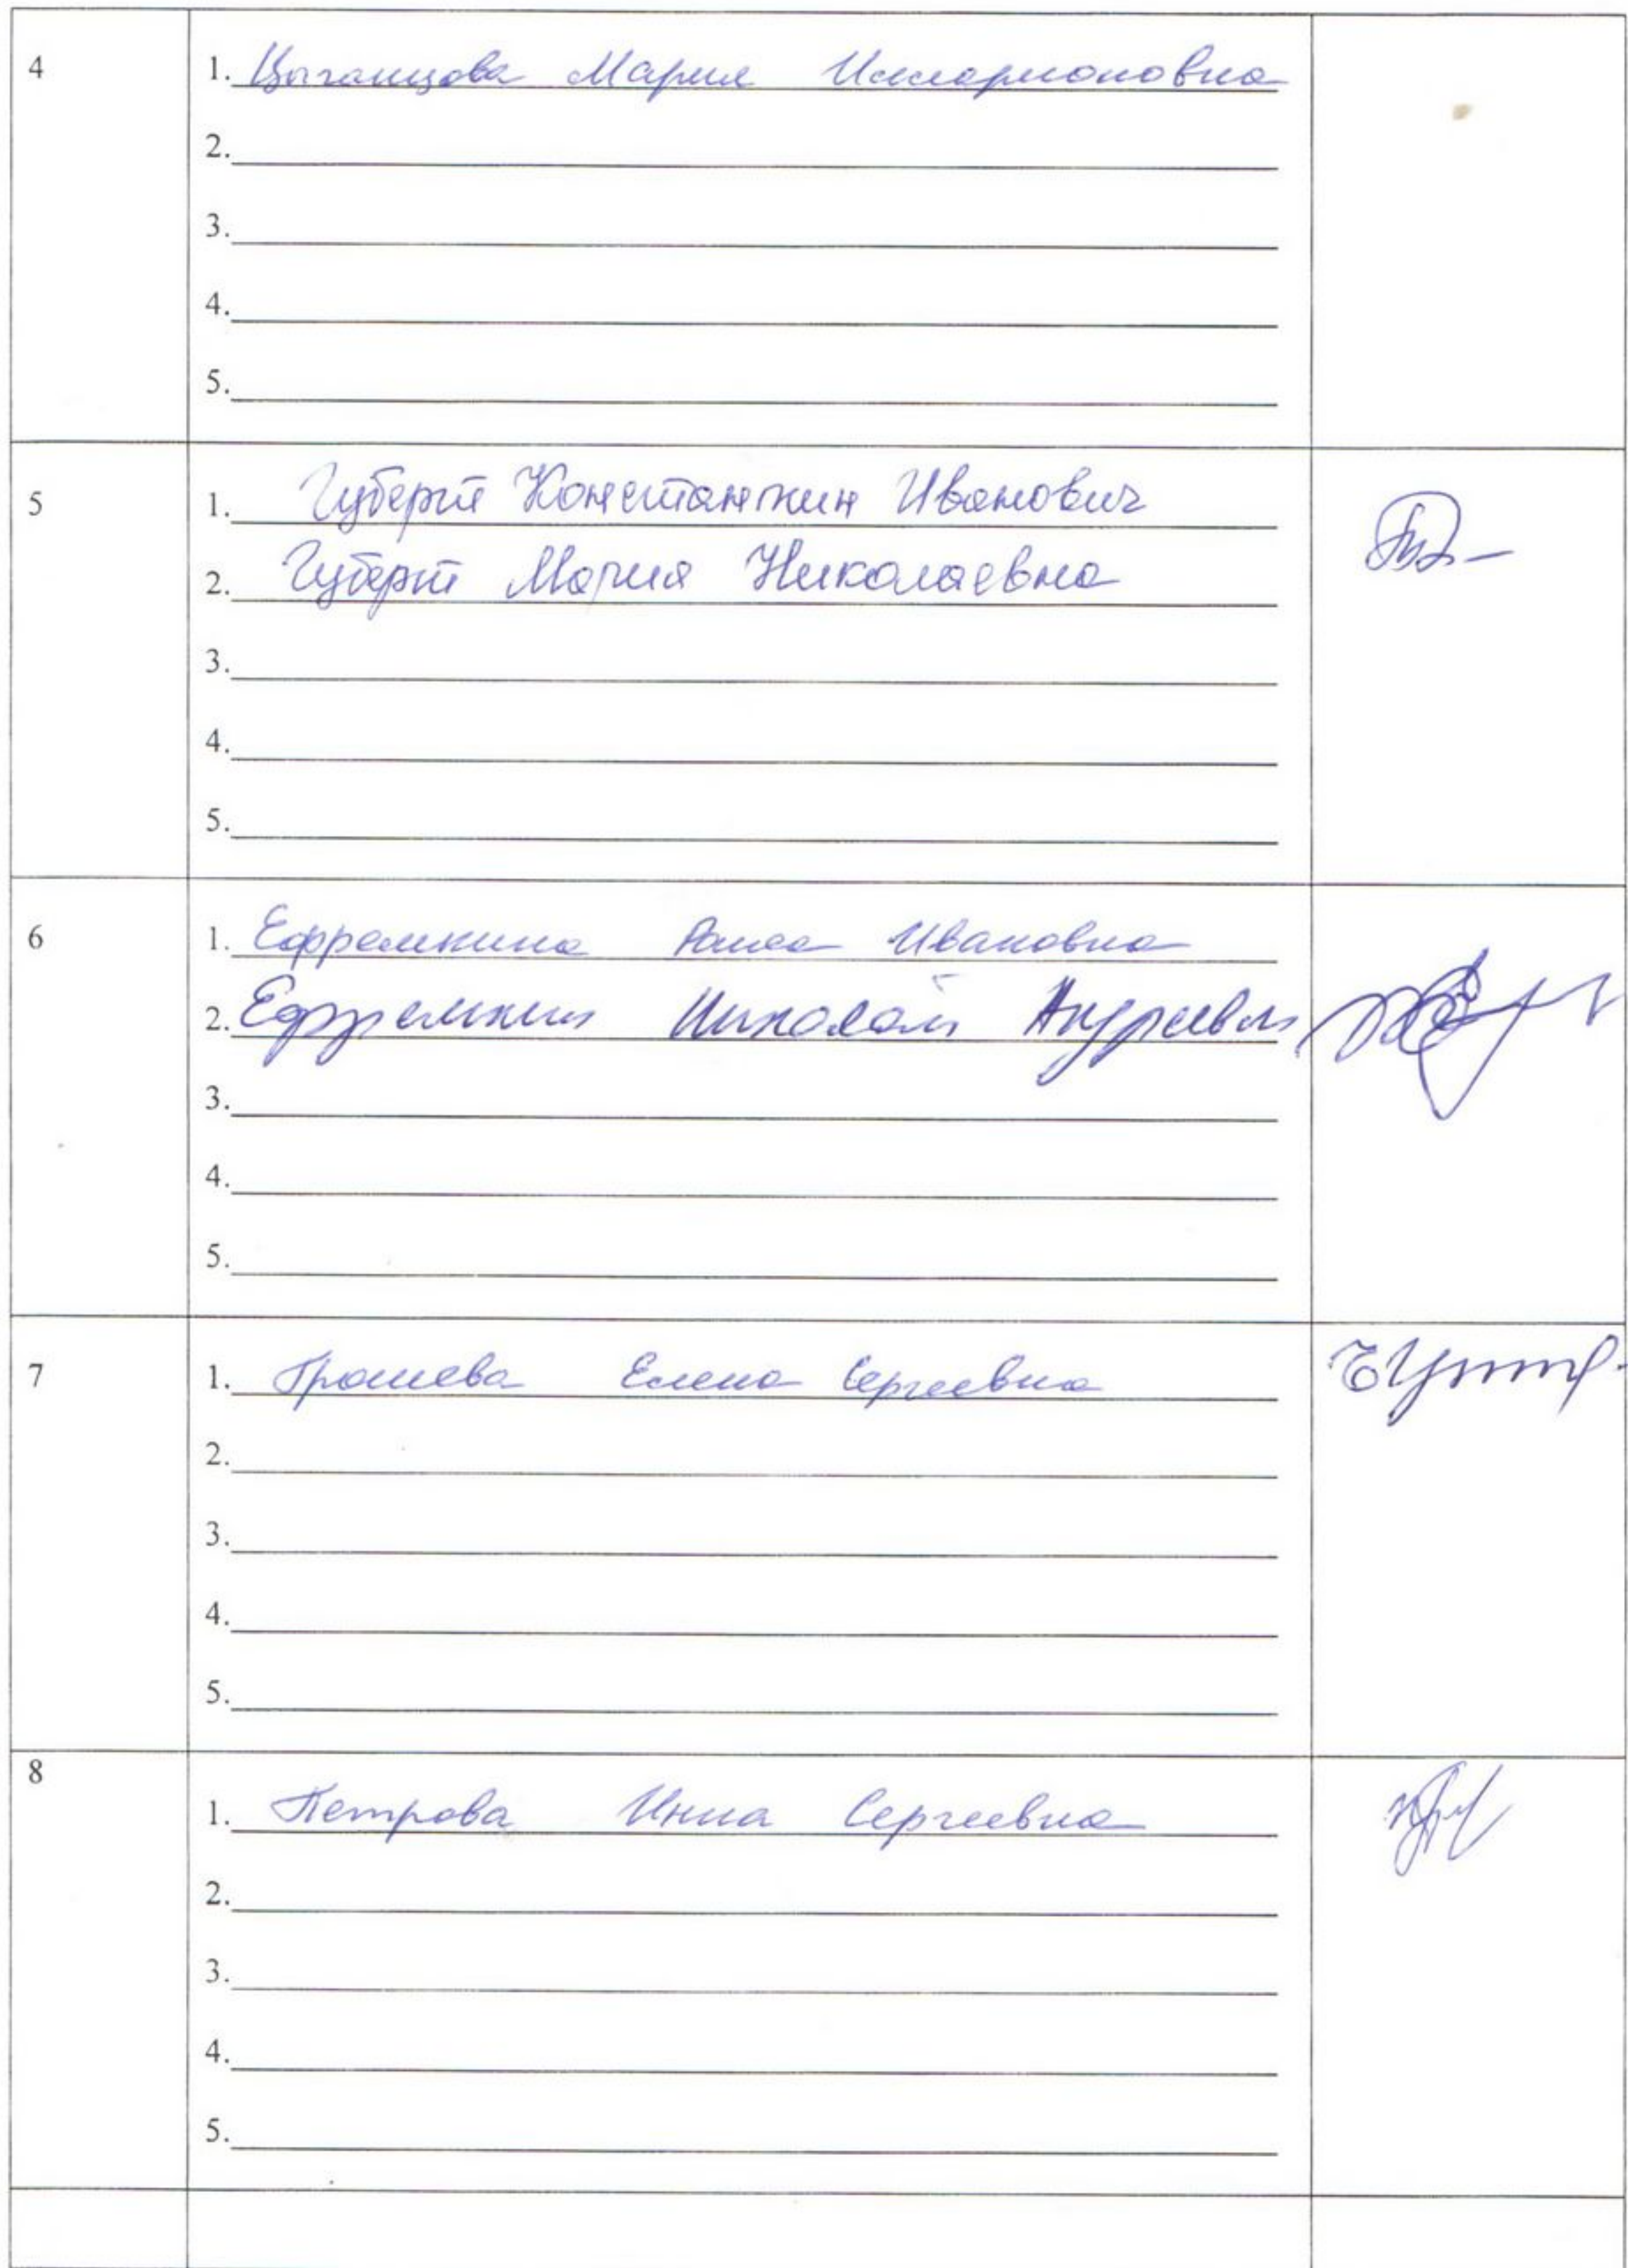 4
1. Цыганцова Мария Илларионовна
2.
3.
4.
5.
5
1. Губерт Константин Иванович
2. Губерт Мария Николаевна
3.
4.
5.
6
1. Ефремкина Раиса Ивановна
2. Ефремкин Николай Андреевич
3.
4.
5.
7
1. Елена Сергеевна
2.
3.
4.
5.
8
1. Петрова Инна Сергеевна
2.
3.
4.
5.